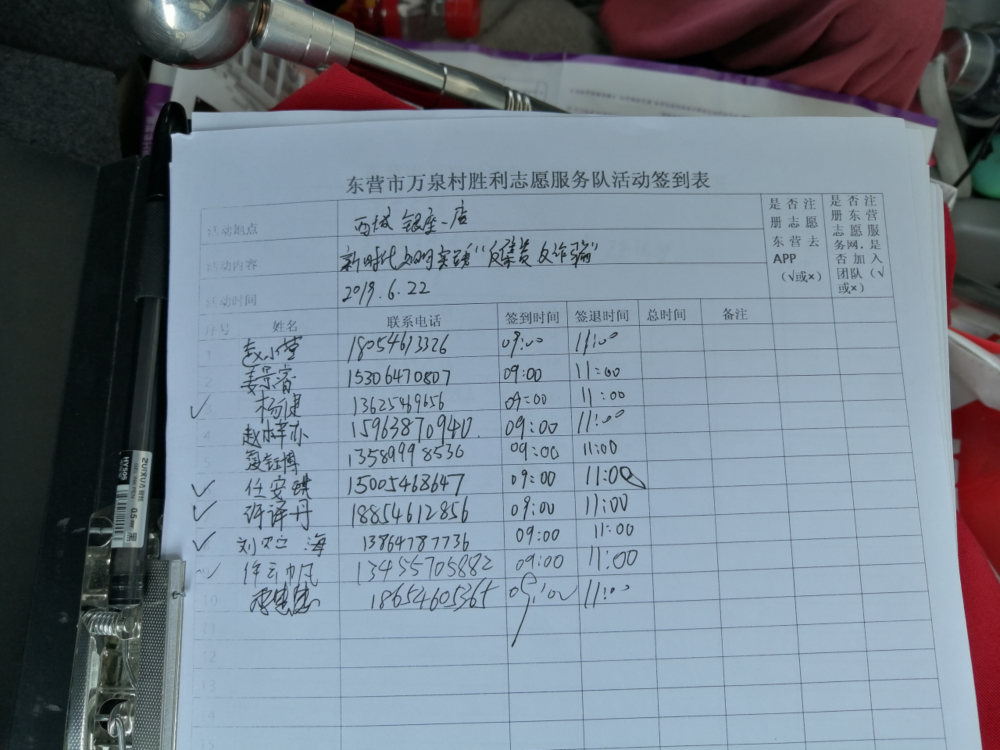 东营市万泉村胜利志愿服务队活动签到表
活动地点 西城银座一店 是否注册志愿东营去APP(√或×) 是否注册东营志愿服务网,是否加入团队(√或×)
活动内容 新时代文明实践"反禁黄反诈骗"
活动时间 2019.6.22
序号 姓名 联系电话 签到时间 签退时间 总时间 备注
1 赵小莹 18054613326 09:00 11:00
2 姜宗睿 15306470807 09:00 11:00
√ 杨健 13625469656 09:00 11:00
4 赵梓 15963870940. 09:00 11:00
5 13589998536 09:00 11:00
√ 任安琪 15005468647 09:00 11:00
√ 许译丹 18854612856 09:00 11:00
√ 刘 海 13864787736 09:00 11:00
√ 徐云帆 13455705882 09:00 11:00
10 18654605365 09:00 11:00
11
12
13
14
15